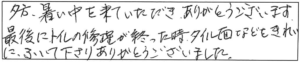 夕方、暑い中を来ていただき ありがとうございます
最後にトイレの修理が終った時タイル面などをきれい
に、ふいて下さりありがとうございました。